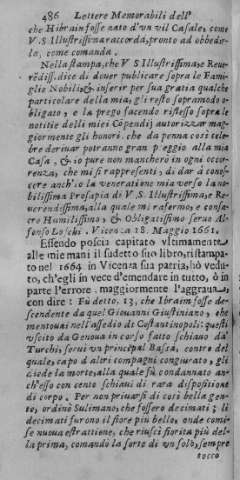 486 Lettere Memorabili dell'
che Hibrain fosse nato d'un vil Casale, come
V.S. Illustrissima raccorda, pronto ad obbedir-
la, come comanda.
Nella stampa, che V S Illustrissima, e Reue-
rēdiss. dice di douer publicare sopra le Fami-
glie Nobili, & inserir per sua gratia qualche
particolare della mia, gli resto sopramodo o-
bligato, e la prego facendo riflesso sopra le
notitie delli miei Copendij autorizzar mag-
giormente gli honori. che da penna così cele-
bre derivar potranno gran p eggio alla mia
Casa, & io pure non mancherò in ogni occor-
renza, che mi si rappresenti, di dar à cono-
scere anch'io la veneratione mia verso la no-
bilissima Prosapia di V.S. Illustrissima, e Re-
uerendissima, alla quale mi raffermo, e conse-
cro Humilissimo, & Obligatissimo seruo Al-
fonso Loschi. Vicenza 18. Maggio 1661.
Essendo poscia capitato vltimamente
alle mie mani il sudetto suo libro, ristampa-
to nel 1664 in Vicenza sua patria, hò vedu-
to, ch'egli in vece d'emendare in tutto, ò in
parte l'errore maggiormente l'aggraua,
con dire: Fù detto, 13, che Ibraim fosse de-
scendente da quel Giouanni Giustiniano, che
mentouai nell'assedio di Costantinopoli: questi
vscito da Genoua in corso fatto schiauo da'
Turchi, serui vn principal Bassà, contro del
quale, capo di altri compagni congiurato, gli
diede la morte, alla quale fù condannato an-
ch'esso con cento schiaui di rara dispositione
di corpo. Per non priuarsi di così bella gen-
te, ordinò Sulimano, che fossero decimati; li
decimati furono il fiore più bello, onde comi-
se nuoua estrattione, che riuscì fiorita più del-
la prima, comandò la sorte di vn solo, sempre
tocco